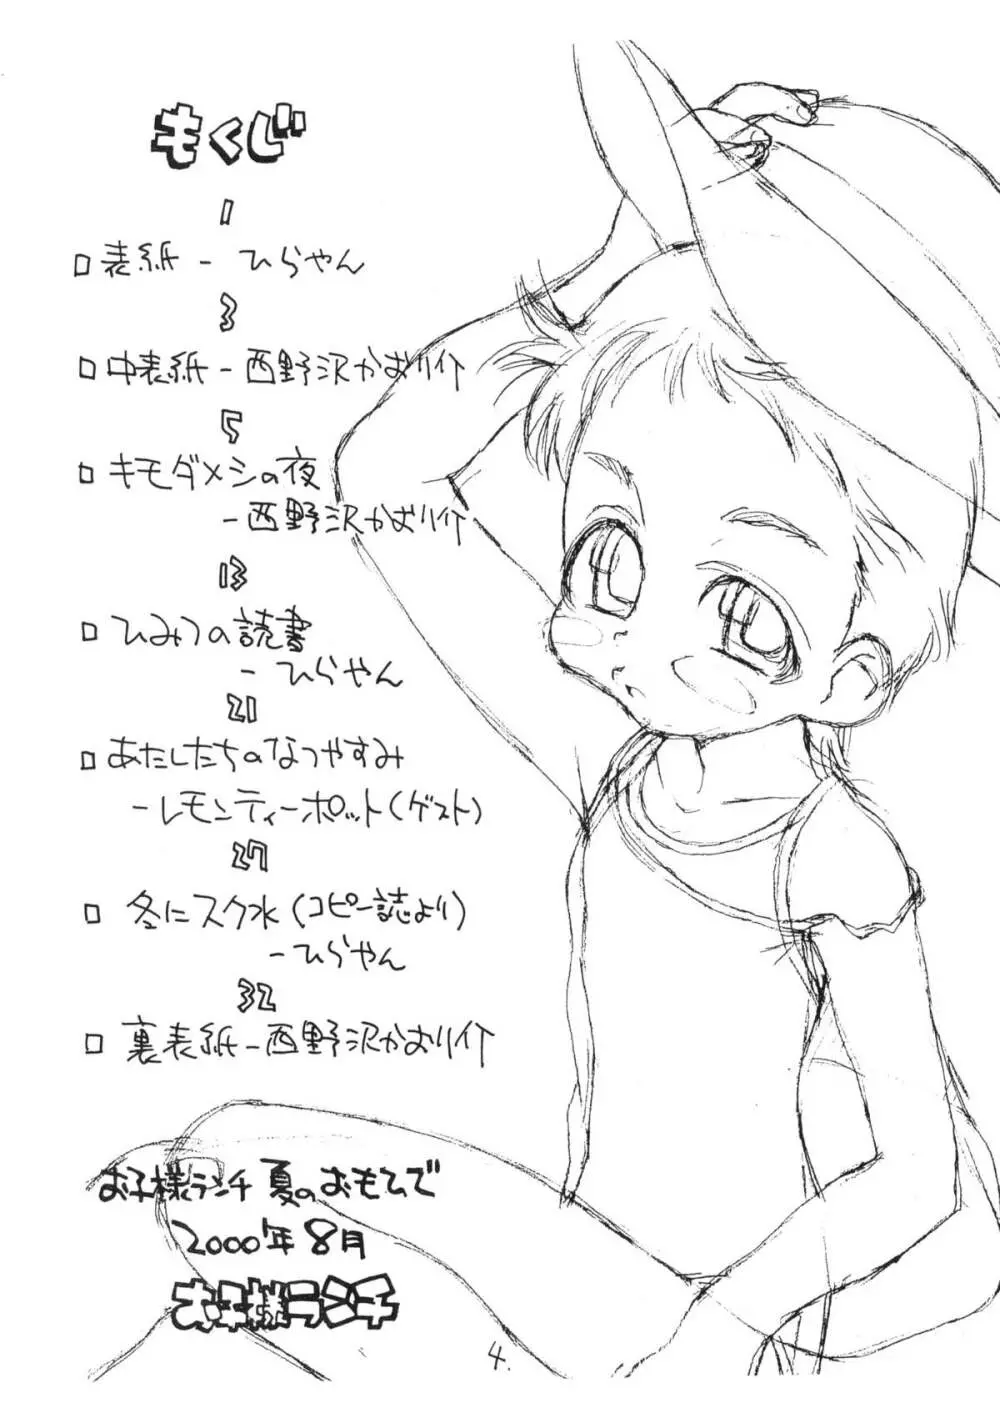 もくじ
1
□表紙 - ひらやん
3
□中表紙 - 西野沢かおり介
5
□キモダメシの夜
- 西野沢かおり介
13
□ひみつの読書
- ひらやん
21
□あたしたちのなつやすみ
- レモンティーポット(ゲスト)
27
□冬にスク水(コピー誌より)
- ひらやん
32
□裏表紙 - 西野沢かおり介
お子様ランチ 夏のおもひで
2000年8月
お子様ランチ
4.